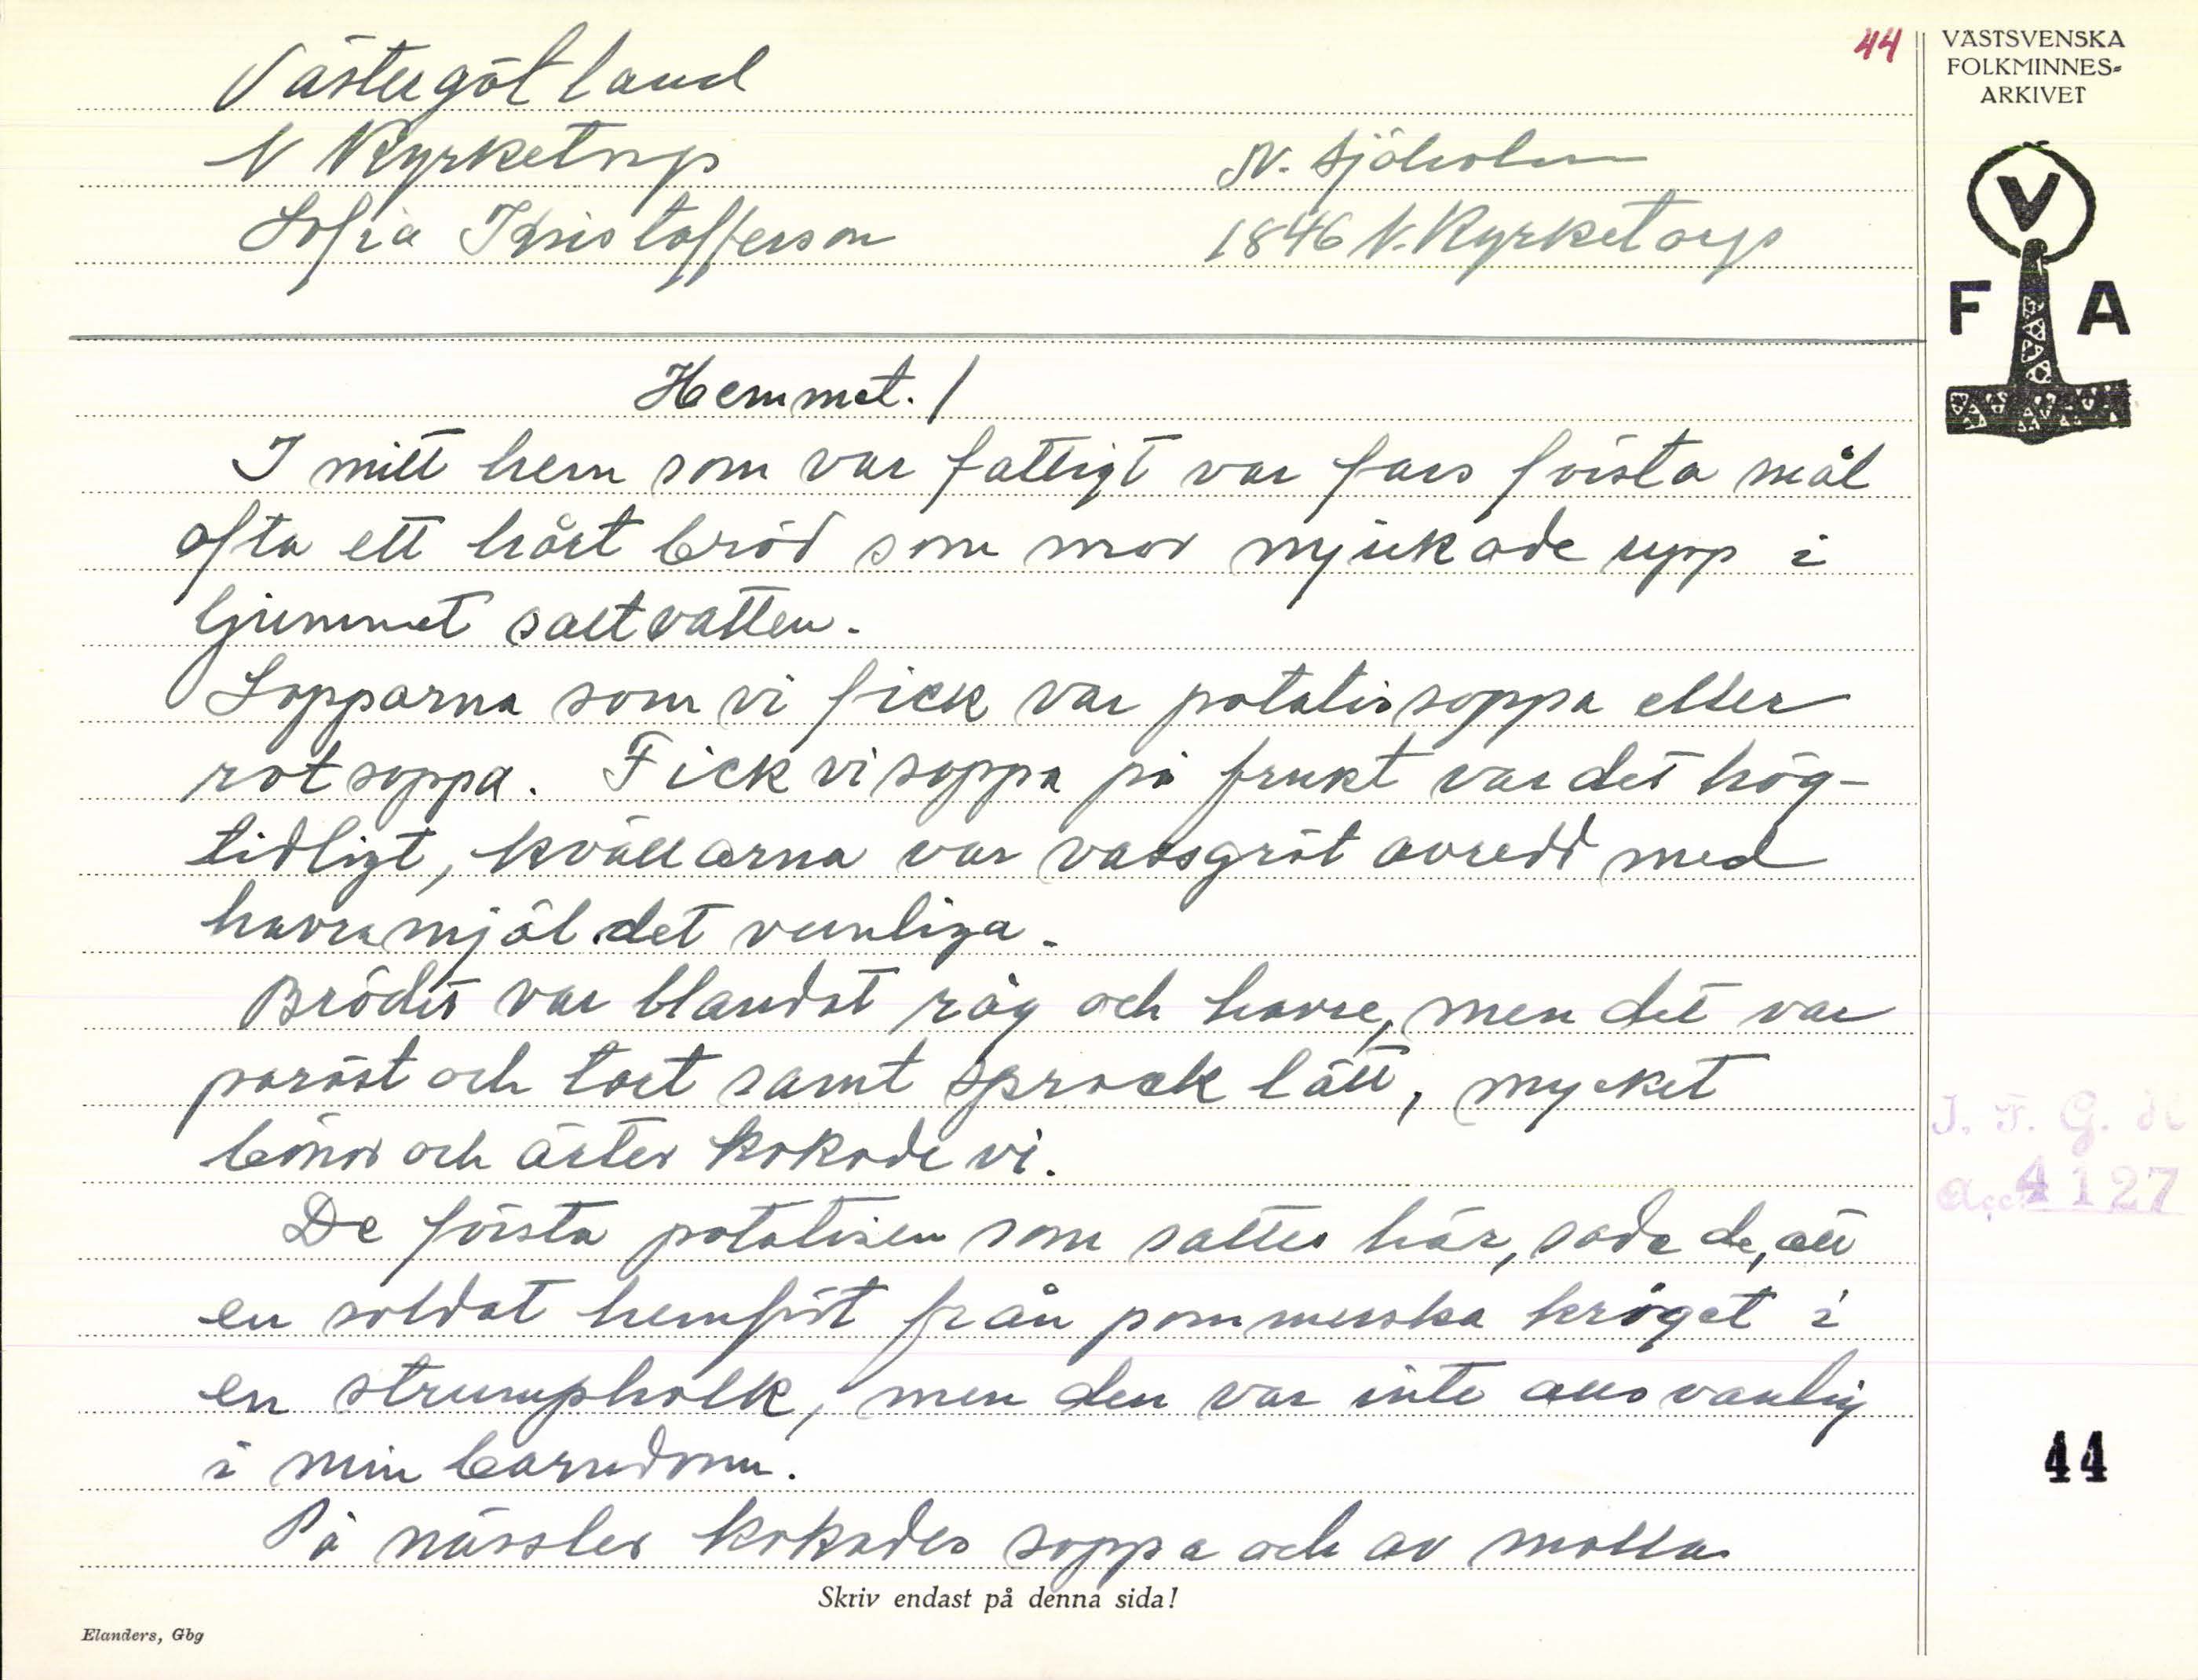 44
VÄSTSVENSKA
FOLKMINNES-
ARKIVET
V
F A
Västergötland
N Kyrketorp
N. Sjöholm
Sofia Kristofferson
1846 N. Kyrketorp
Hemmet. /
I mitt hem som var fattigt var fars första mål
ofta ett hårt bröd som mor mjukade upp i
ljummet saltvatten.
Sopporna som vi fick var potatissoppa eller
rotsoppa. Fick vi soppa på frukt var det hög-
tidligt, kvällarna var vassgröt avredd med
havramjöl det vanliga.
Brödet var blandat råg och havre, men det var
poröst och tort samt sprack lätt, mycket
bönor och ärter kokade vi.
De första potatisen som sattes här, sade de, att
en soldat hemfört från pommerska kriget i
en strumpholk, men den var inte alls vanlig
i min barndom.
På nässlor kokades soppa och av molla
Skriv endast på denna sida!
Elanders, Gbg
I. F. G. H
acc. 4127
44